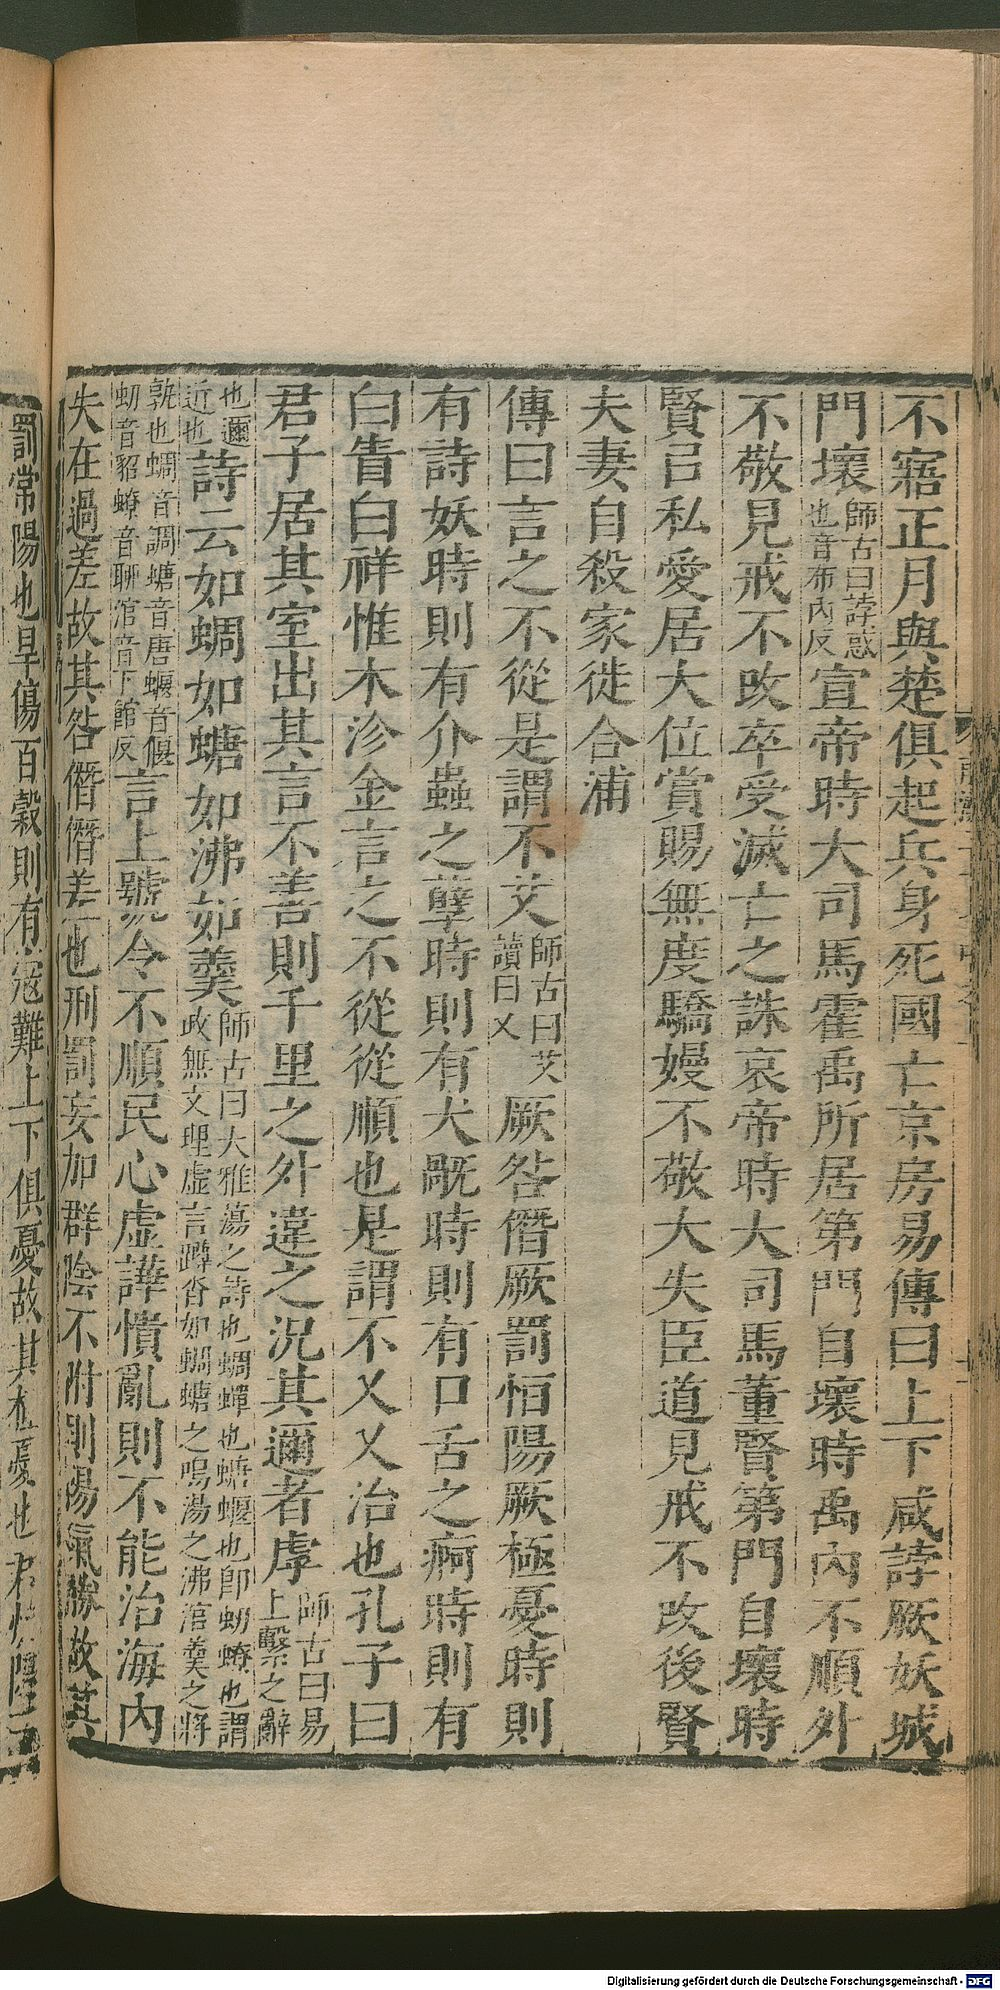 不寤正月與楚俱起兵身死國亡京房易傳曰上下咸誖厥妖城
門壞師古曰誖惑也音布內反宣帝時大司馬霍禹所居第門自壞時禹內不順外
不敬見戒不改卒受滅亡之誅哀帝時大司馬董賢第門自壞時
賢㠯私愛居大位賞賜無度驕嫚不敬大失臣道見戒不改後賢
夫妻自殺家徙合浦
傳曰言之不從是謂不艾師古曰艾讀曰乂厥咎僭厥罰恒陽厥極憂時則
有詩妖時則有介蟲之孽時則有犬旤時則有口舌之痾時則有
白眚白祥惟木沴金言之不從從順也是謂不乂乂治也孔子曰
君子居其室出其言不善則千里之外違之況其邇者虖師古曰易上繫之辭
也邇近也詩云如蜩如螗如沸如羹師古曰大雅蕩之詩也蜩蟬也螗蝘也卽蚏蟟也謂政無文理虛言𨆫沓如蜩螗之鳴湯之沸涫羹之將
孰也蜩音調螗音唐蝘音偃蚏音貂蟟音聊涫音下館反言上號令不順民心虛譁憒亂則不能治海內
失在過差故其咎僭僭差也刑罰妄加群陰不附則陽氣勝故其
罰常陽也旱傷百穀則有寇難上下俱憂故其極憂也君
Digitalisierung gefördert durch die Deutsche Forschungsgemeinschaft - DFG